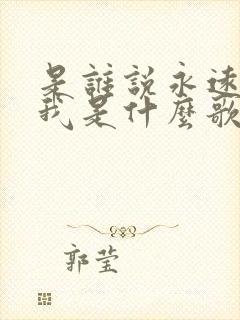 是誰説永遠
我是什麼歌
郭莹